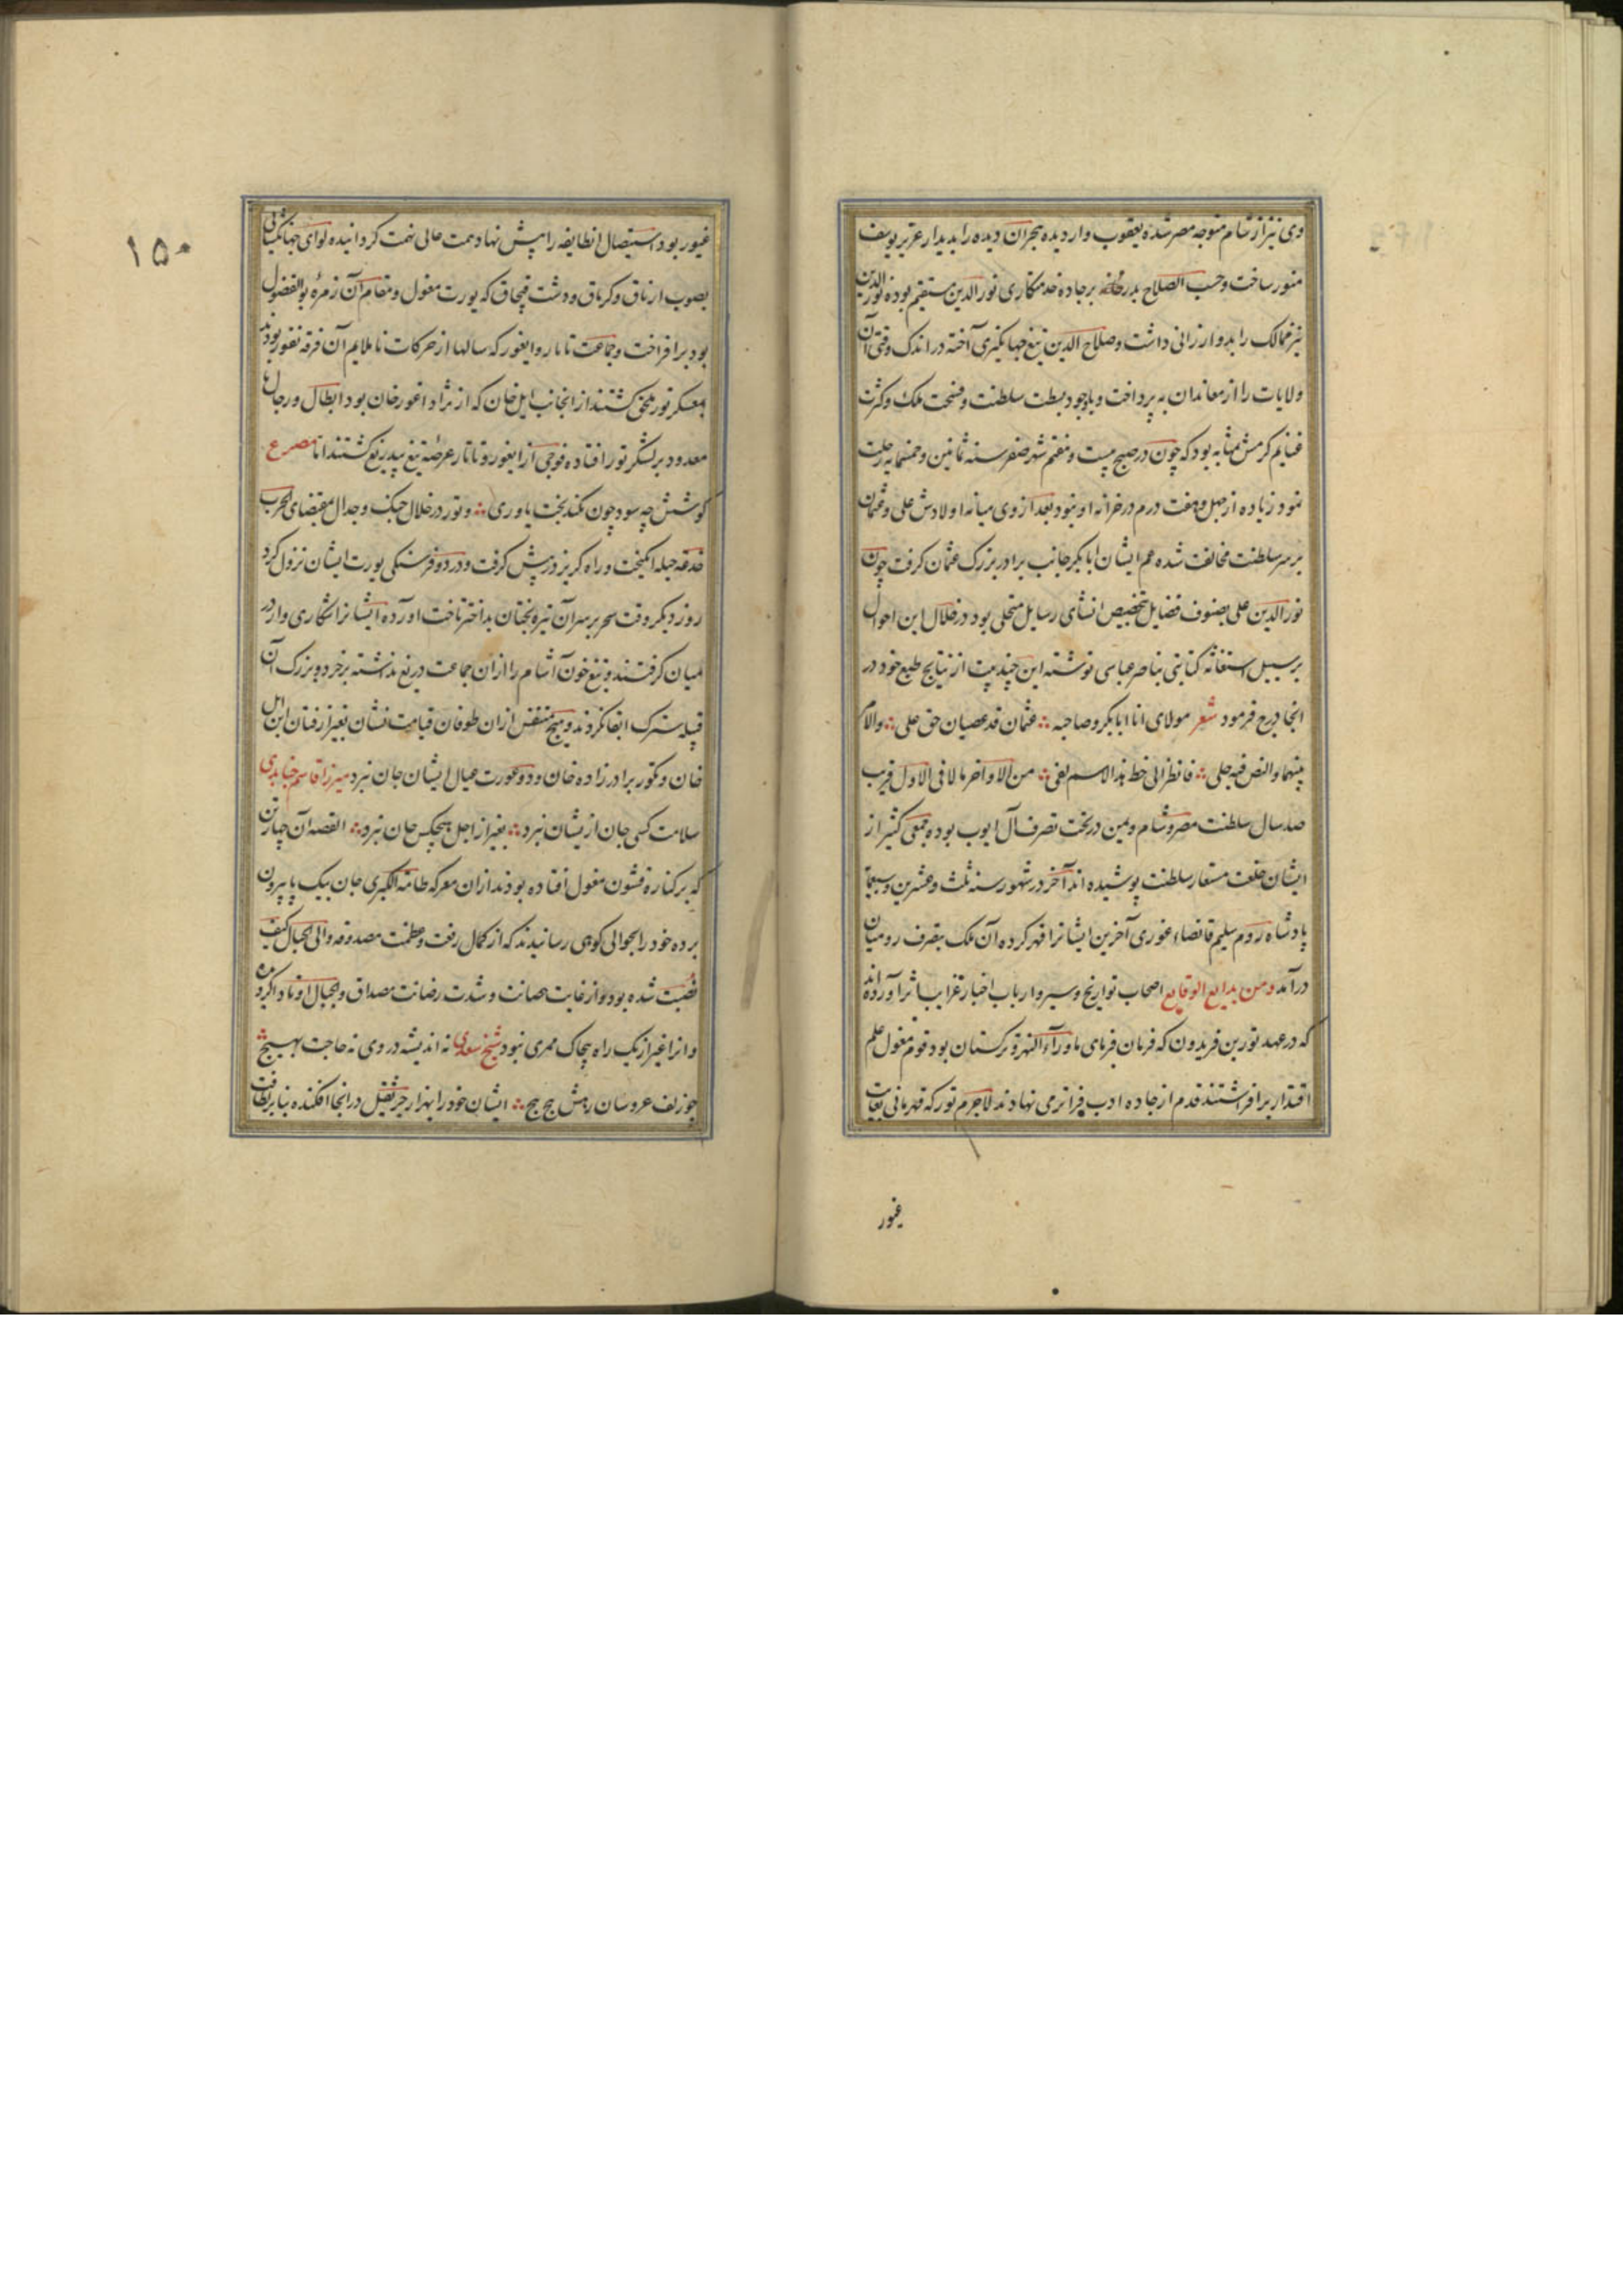 وی نیز از شام متوجه مصر شده یعقوب وار دیده هجران دیده را بدیدار عزیز یوسف
منور ساخت و حسب الصلاح پدر بر جاده خدمتکاری نورالدین مستقیم بوده نورالدین
نیز ممالک را بدو ارزانی داشت و صلاح الدین تیغ جهانگیری آخته در اندک وقتی آن
ولایات را از معاندان به پرداخت و باوجود بسطت سلطنت و فسحت ملک و کثرت
غنایم کرمش بمثابه بود که چون در صبح بیست و هفتم شهر صفر سنه ثمانین و خمسمایه رحلت
نمود زیاده از چهل و هفت درم در خزانه او نبود بعد از وی میانه اولادش علی و عثمان
بر سر سلطنت مخالفت شده عم ایشان ابابکر جانب برادر بزرگ عثمان گرفت چون
نورالدین علی بصنوف فضایل بتخصیص انشای رسایل متحلی بود در خلال این احوال
بر سبیل استغاثه کتابتی بناصر عباسی نوشته این چند بیت از نتایج طبع خود در
انجا درج فرمود شعر مولای انا ابابکر و صاحبه ∴ عثمان قد غصبان حق علی ∴ والامر
بینهما والنص فیه جلی ∴ فانظر الی خط هذا الاسم لقی ∴ من الاواخر ما لاقی الاول قریب
صد سال سلطنت مصر و شام و یمن در تحت تصرف آل ایوب بوده جمعی کثیر از
ایشان خلعت مستعار سلطنت پوشیده اند آخر در شهور سنه ثلث و عشرین و سبعمایة
پادشاه روم سلیم قانصاء غوری آخرین ایشانرا قهر کرده آن ملک بتصرف رومیان
درآمد و من بدایع الوقایع اصحاب تواریخ و سیر و ارباب اخبار غرایب اثر آورده اند
که در عهد تور بن فریدون که فرمان فرمای ماورآء النهر و ترکستان بود قوم مغول علم
اقتدار برافراشتند قدم از جاده ادب فراتر می نهادند لاجرم تور که قهرمانی بغایت
غیور
۱۵۰
غیور بود استیصال انطایفه را پیش نهاد همت عالی نهمت گردانیده لوای جهانگشائی
بصوب ارتاق و کرتاق و دشت قپچاق که یورت مغول و مقام آن زمره بوالفضول
بود برافراخت و جماعت تاتار و ایغور که سالها از حرکات ناملایم آن فرقه نفور بودند
بمعسکر تور ملحق گشتند از انجانب ایل خان که از نژاد اغورخان بود ابطال و رجال
معدود بر لشکر تور افتاده فوجی از ایغور و تاتار عرضه تیغ بیدریغ گشتند اما مصرع
کوشش چه سود چون نکند بخت یاوری ∴ و تور در خلال جنگ و جدال بمقتضای الحرب
خدعة حیله انگیخت و راه گریز در پیش گرفت و در دو فرسنگی یورت ایشان نزول کرد
روز دیگر وقت سحر بر سر آن تیره بختان بد اختر تاخت آورده ایشانرا شکاری وار در
میان گرفتند و تیغ خون آشام را از ان جماعت دریغ نداشته بر خرد و بزرگ آن
قبیله سترک ابقا نکردند و هیچ متنفس از ان طوفان قیامت نشان بغیر از قنان ابن ایل
خان و نکوز برادرزاده خان و دو عورت عیال ایشان جان نبرد میرزا قاسم جنابدی
سلامت کسی جان ازیشان نبرد ∴ بغیر از اجل هیچکس جان نبرد ∴ القصه آن چهار تن
که بر کناره قشون مغول افتاده بودند از ان معرکه طامة الکبری جان بیک پا بیرون
برده خود را بحوالی کوهی رسانیدند که از کمال رفعت و عظمت مصدوقه والی الجبال کیف
نصبت شده بود و از غایت حصانت و شدت رضانت مصداق والجبال اوتادا کرده
و انرا غیر از یک راه هیچاک ممری نبود شیخ سعدی نه اندیشه در وی نه حاجت بهیچ
چو زلف عروسان رهش پیچ پیچ ∴ ایشان خود را بهزار جر ثقیل در انجا افکنده بنا بر نظافت